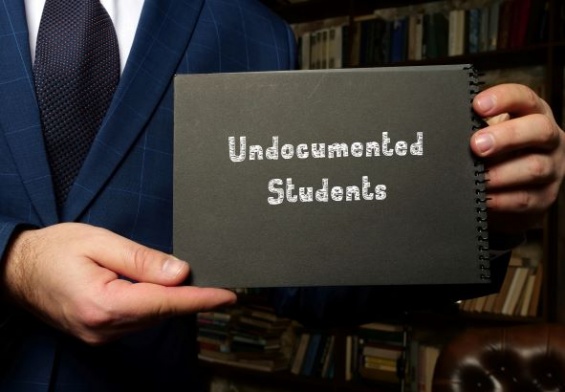 Undocumented
Students